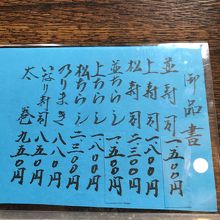 御品書
並寿司 一五〇〇円
上寿司 一八〇〇円
松寿司 二三〇〇円
並ちらし 一五〇〇円
上ちらし 一八〇〇円
松ちらし 二三〇〇円
のりまき 八〇〇円
いなり寿司 八五〇円
太巻 九五〇円